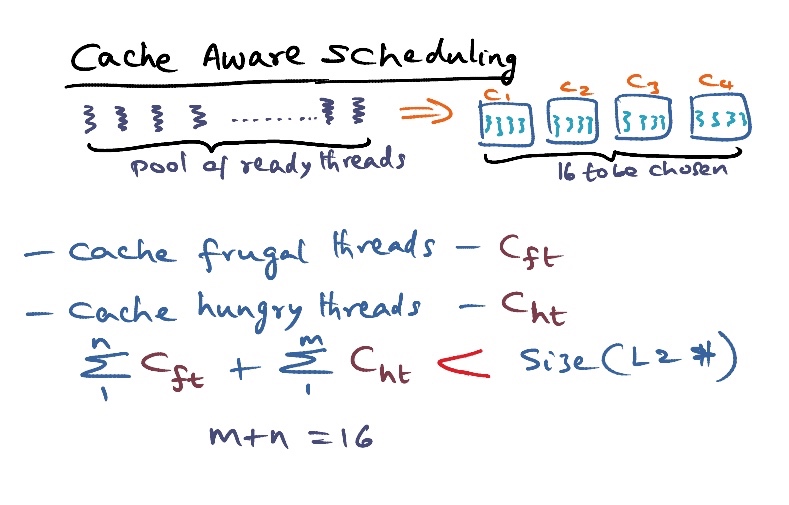 Cache Aware Scheduling
C1 C2 C3 C4
pool of ready threads
16 to be chosen
- cache frugal threads - Cft
- Cache hungry threads - Cht
n∑1 Cft + m∑1 Cht < Size(L2 $)
m+n = 16